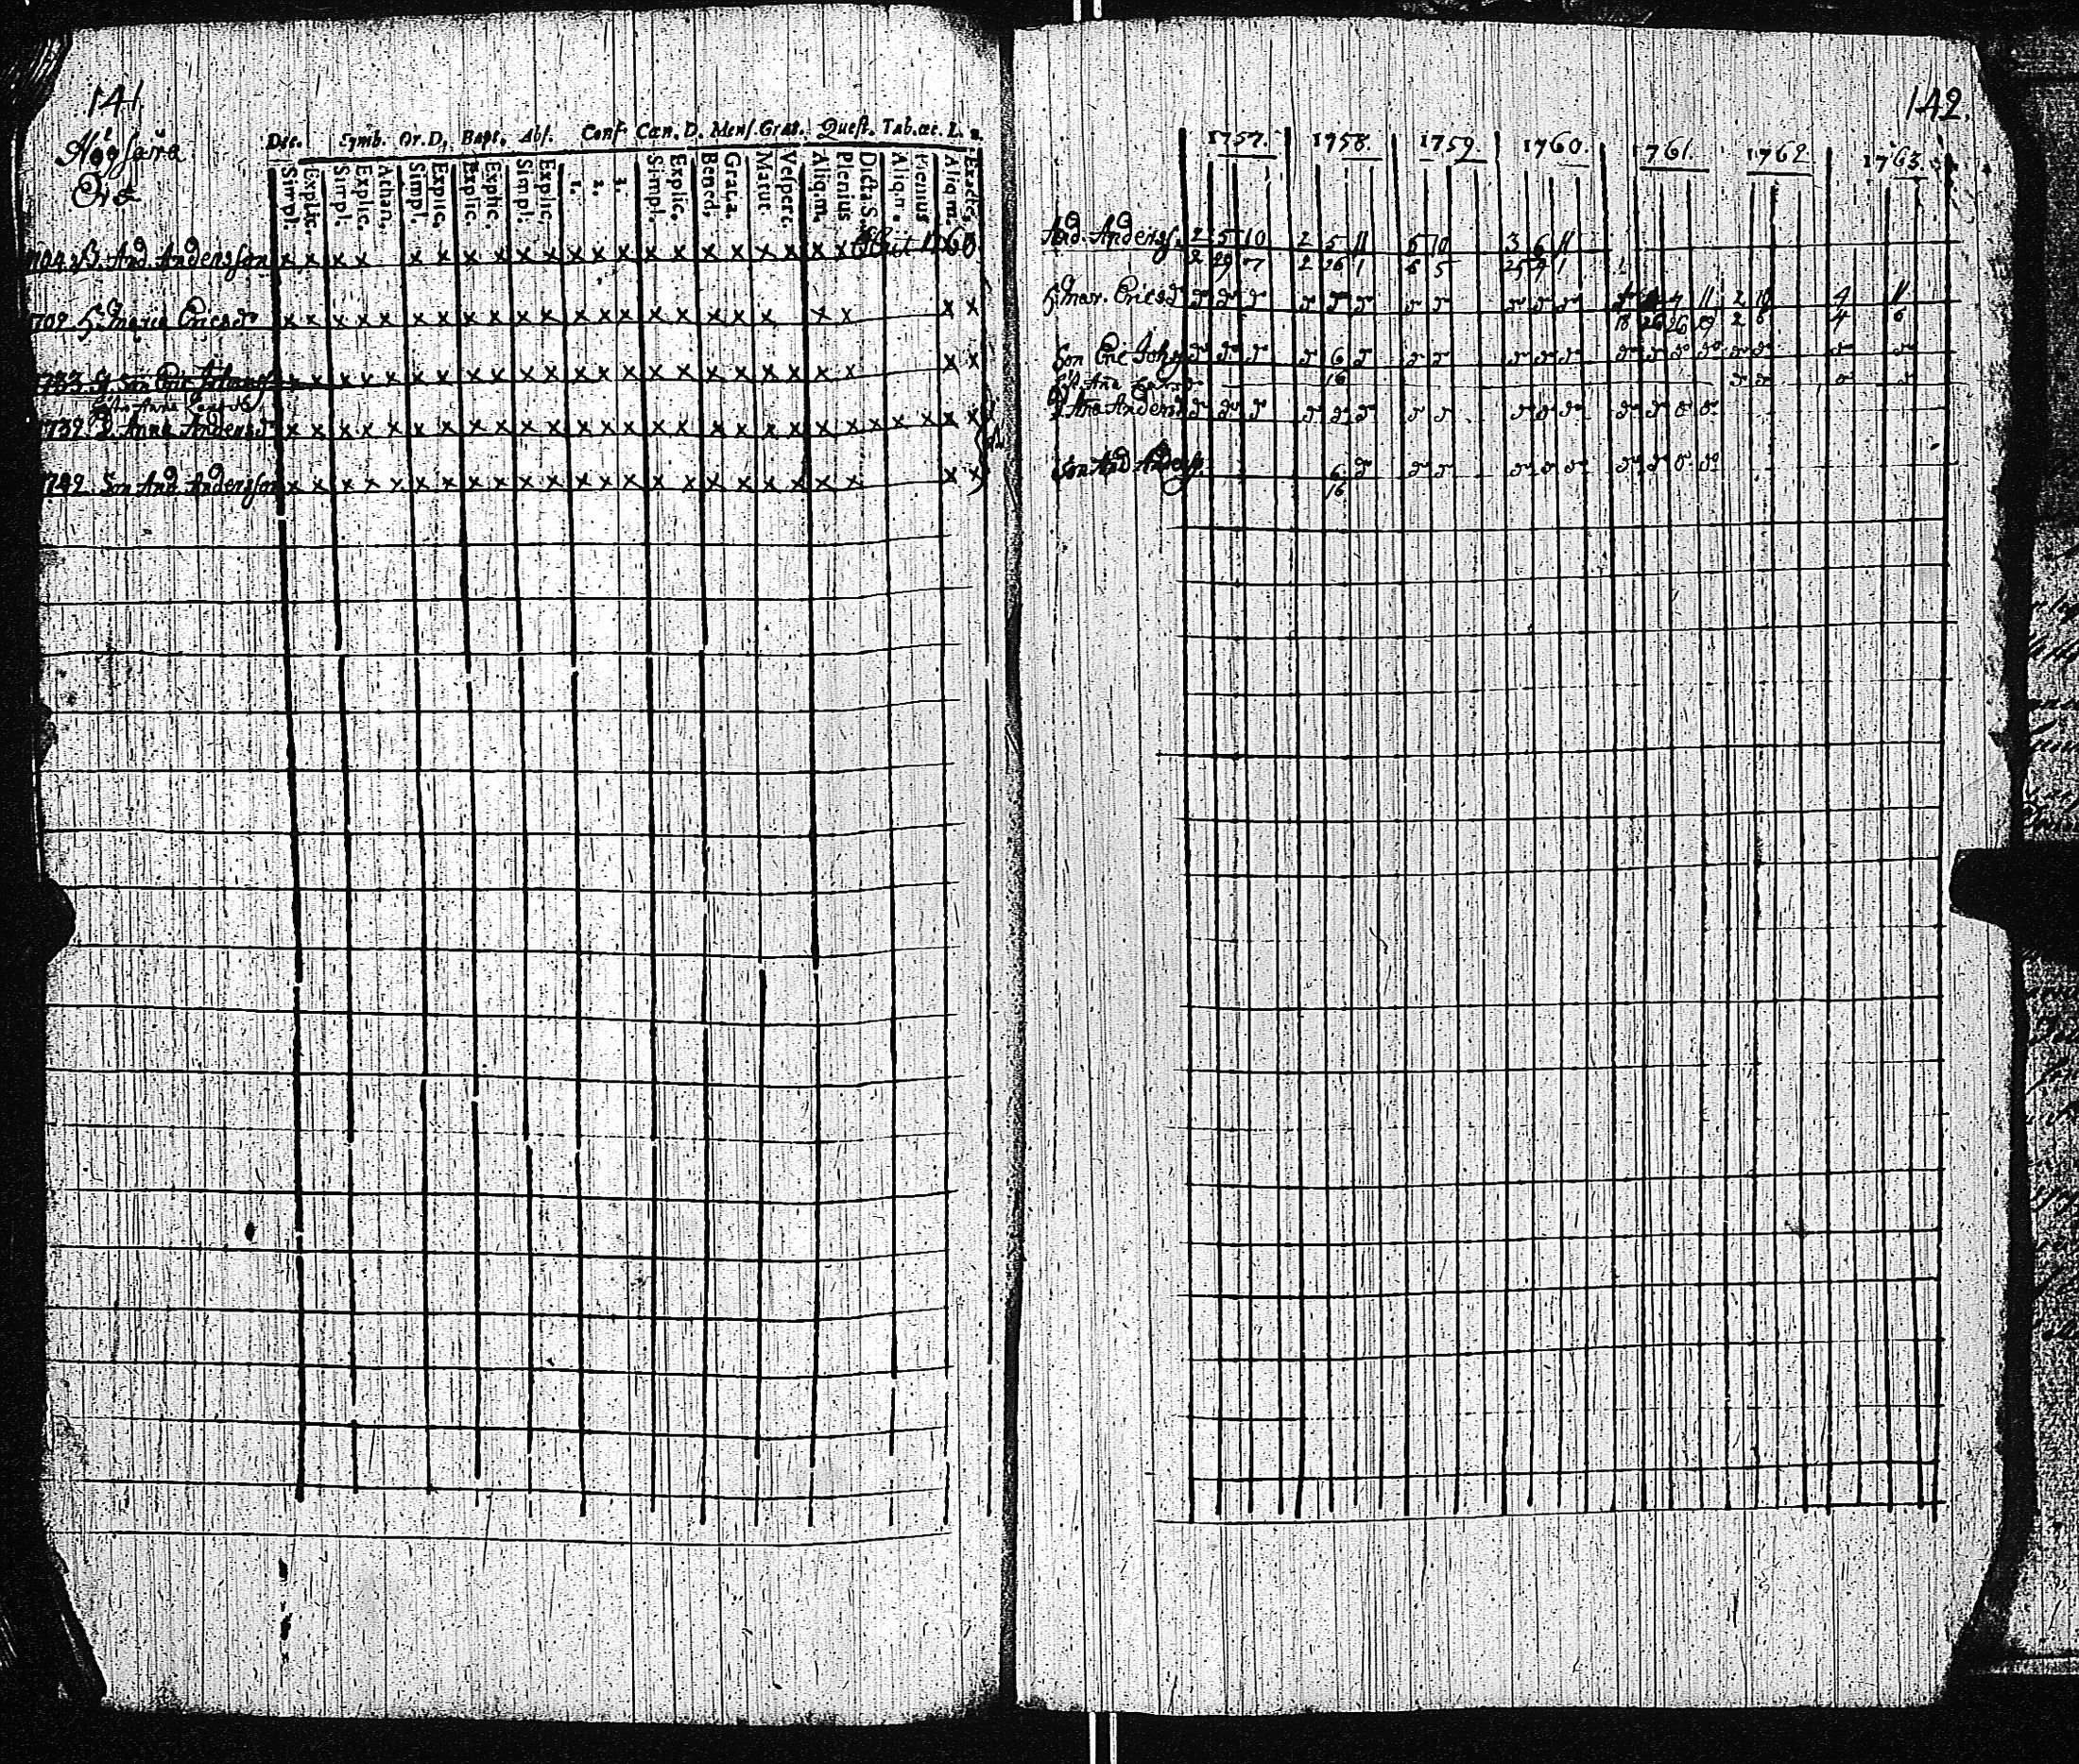 141.
Högsara
Dec. Symb. Or. D. Bapt. Abs. Conf. Cœn. D. Mens. Grat. Quest. Tab. œc. L. a.
Simpl. Explic. Simpl. Explic. Athan. Simpl. Explic. Explic. Explic. Simpl. Explic. 1. 2. 3. Simpl. Explic. Bened. Grat. a. Matut. Vespert. Aliq. m. Plenius Dicta S. Aliq. n. Plenius Aliq. m. Exacte.
And. Andersson x x x x x x x x x x x x x x x x x x x x x Obiit 1760
1709. H. Maria Ericsdr x x x x x x x x x x x x x x x x x x x x x x x x
1733. Son Eric Johans x x x x x x x x x x x x x x x x x x x x x x x x
Anna Larsdr
1739. D. Anna Andersdr x x x x x x x x x x x x x x x x x x x x x x x x x x x
1742. Son And. Andersson x x x x x x x x x x x x x x x x x x x x x x x x
142.
1757. 1758. 1759. 1760. 1761. 1762. 1763.
And. Anderss. 2 5 10 2 5 11 5 10 3 6 11
2 29 7 2 26 1 6 5 25 9 1
H. Mar. Ericsdr dr dr dr dr dr dr dr dr dr dr dr 4 11 2 10 4 11
18 26 26 2 8 4 6
Son Eric Johans dr dr dr dr 6 dr dr dr dr dr dr dr dr dr dr dr dr dr dr
16
Ana Larsdr dr dr dr dr
D. Ana Andersd dr dr dr dr dr dr dr dr dr dr dr dr dr dr dr
Son And. Anderss. 6 dr dr dr dr dr dr dr dr dr dr
16